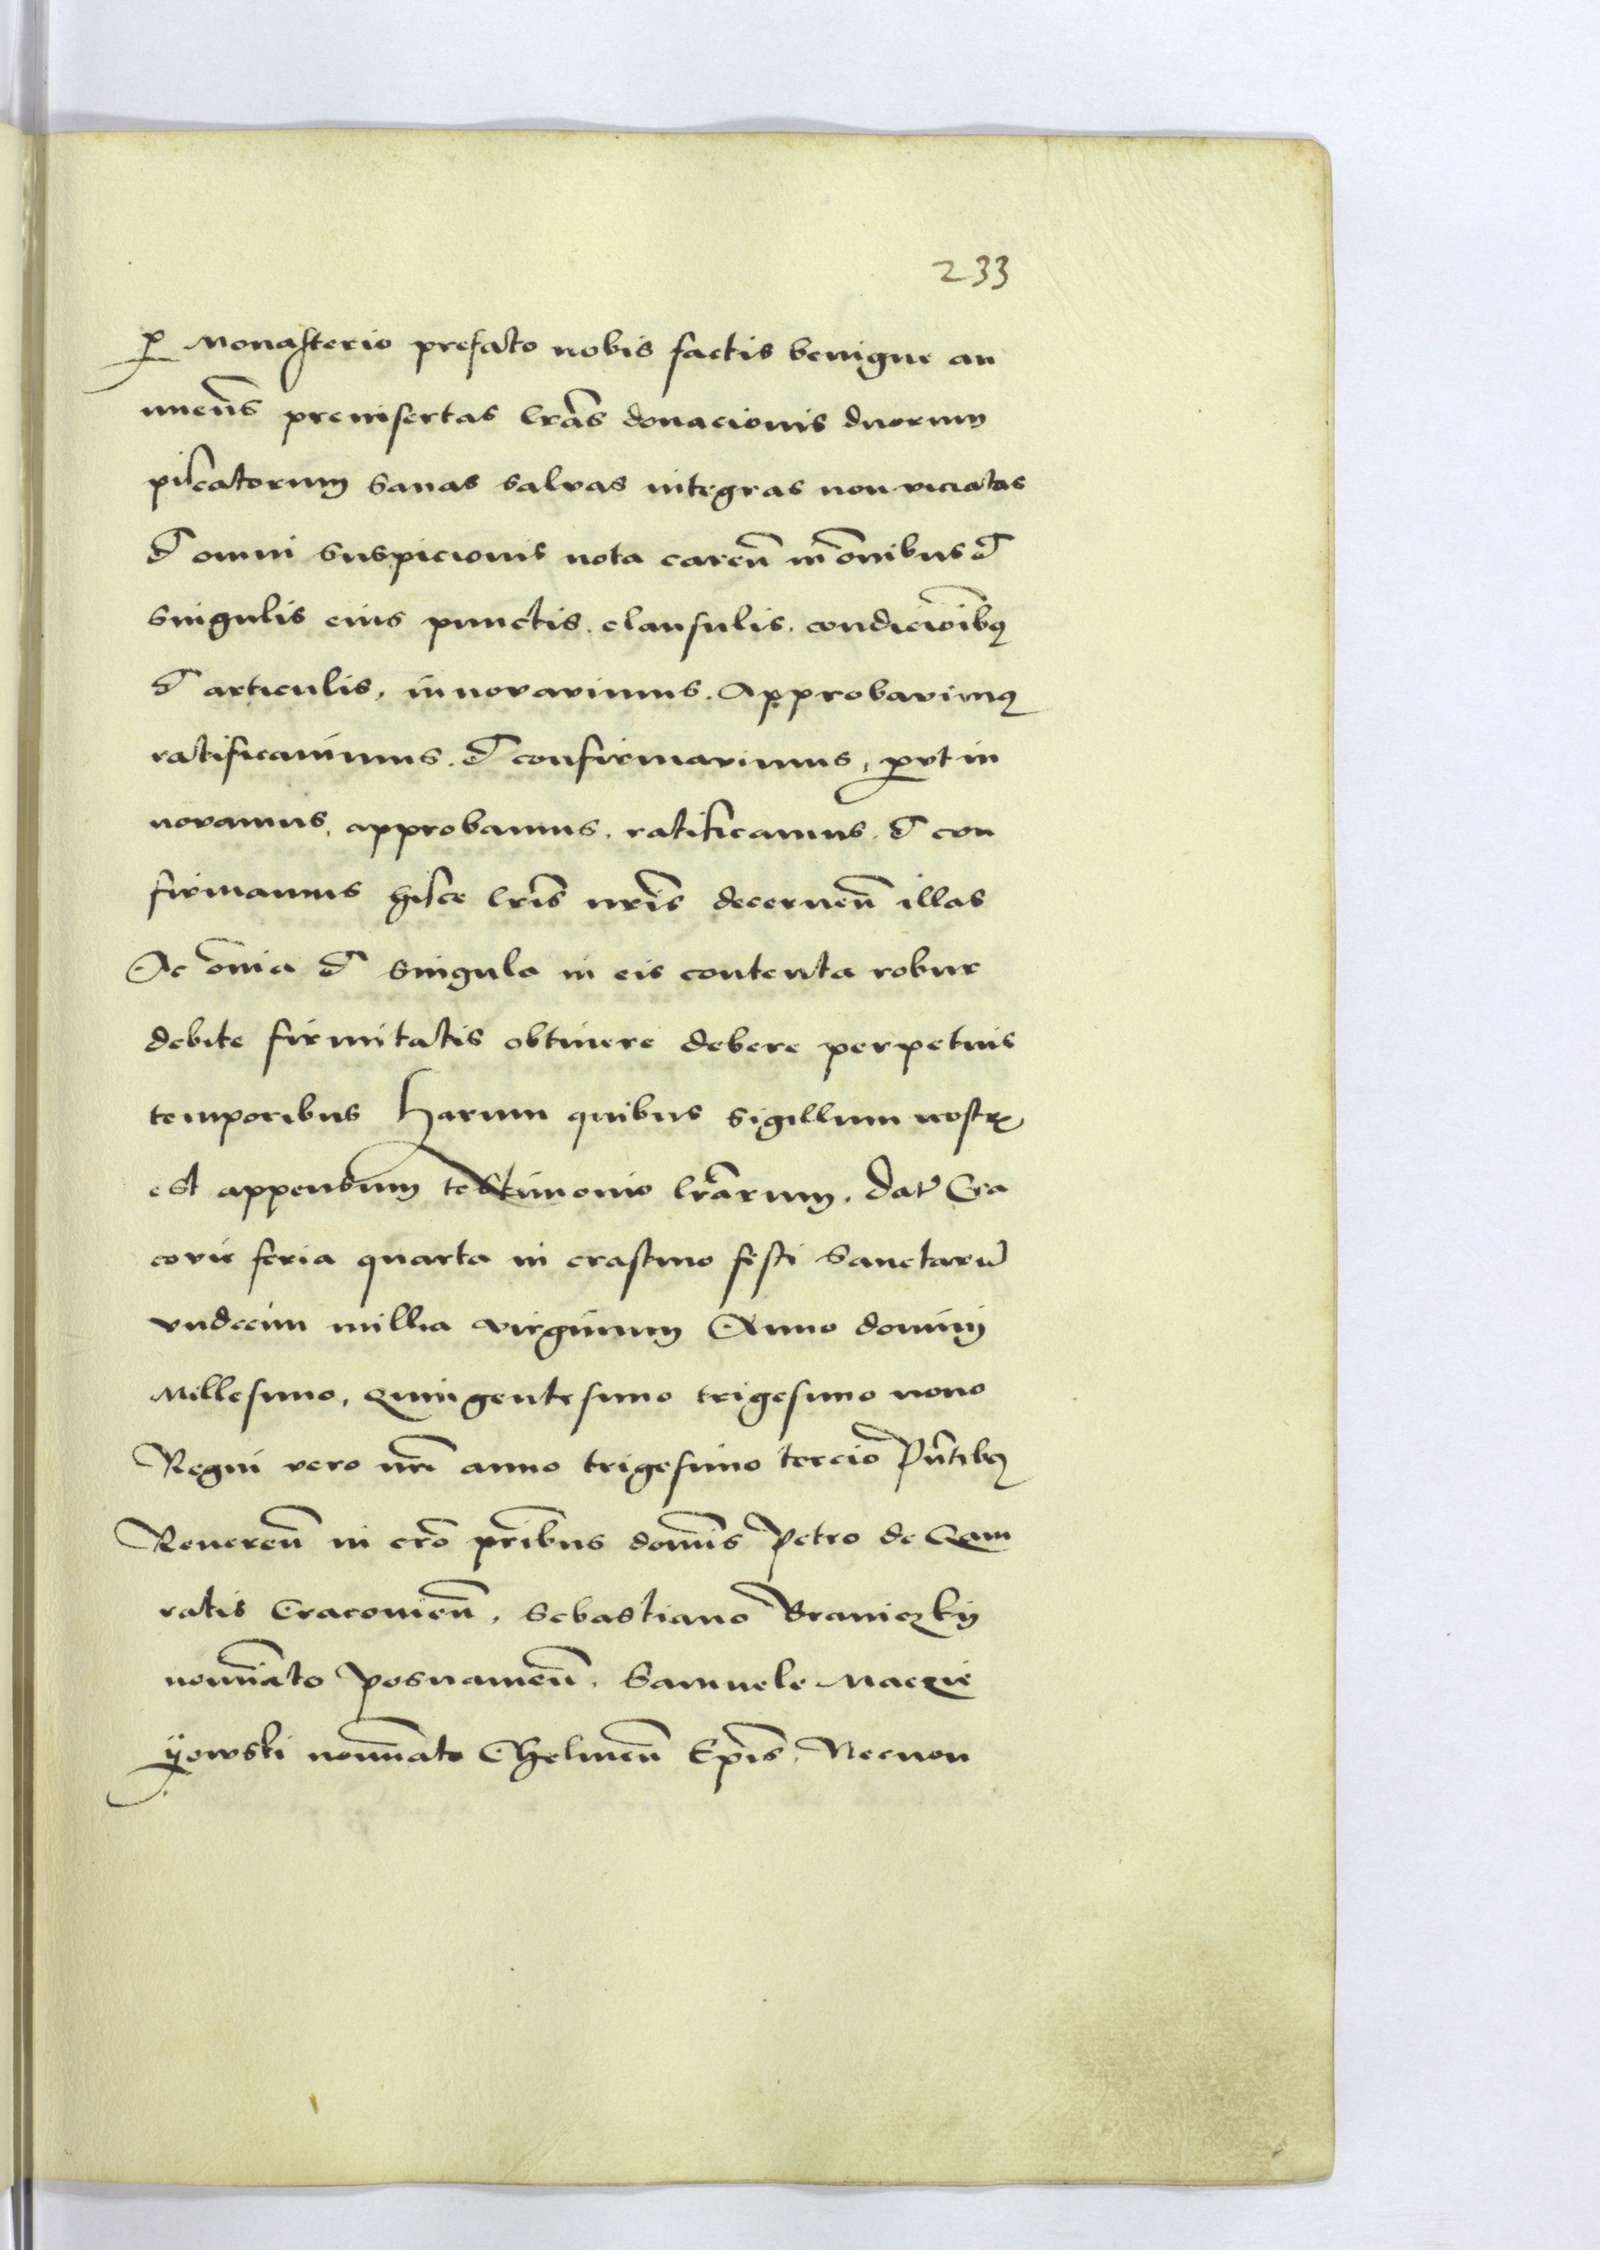 233
p Monasterio prefato nobis factis benigne an
nuen̄s preinsertas lrās donacionis duorum
piscatorum sanas salvas integras non viciatas
et omni suspicionis nota caren̄ in om̄ibus et
singulis eius punctis. clausulis. condicioīb9
et articulis, innovavimus. Approbavim9
ratificavimus. et confirmavimus, put in
novamus, approbamus. ratificamus. et con
firmamus hisce lrīs nrīs decernen̄ illas
Ac om̄ia et singula in eis contenta robur
debite firmitatis obtinere debere perpetuis
temporibus Harum quibus sigillum nostrū
est appensum testimonio lrārum. Dat̄ Cra
covie feria quarta in crastino festi Sanctarū
undecim millia virginum Anno domini
Millesimo, Quingentesimo trigesimo nono
Regni vero nrī anno trigesimo tercio Pn̄tib9
Reveren̄ in crō prībus domīs Petro de Gam
ratis Cracovien̄, Sebastiano Braniczkij
nomīato Posnanien̄. Samuele Maczie
ÿowski nomīato Chelmen̄ Epīs. Necnon